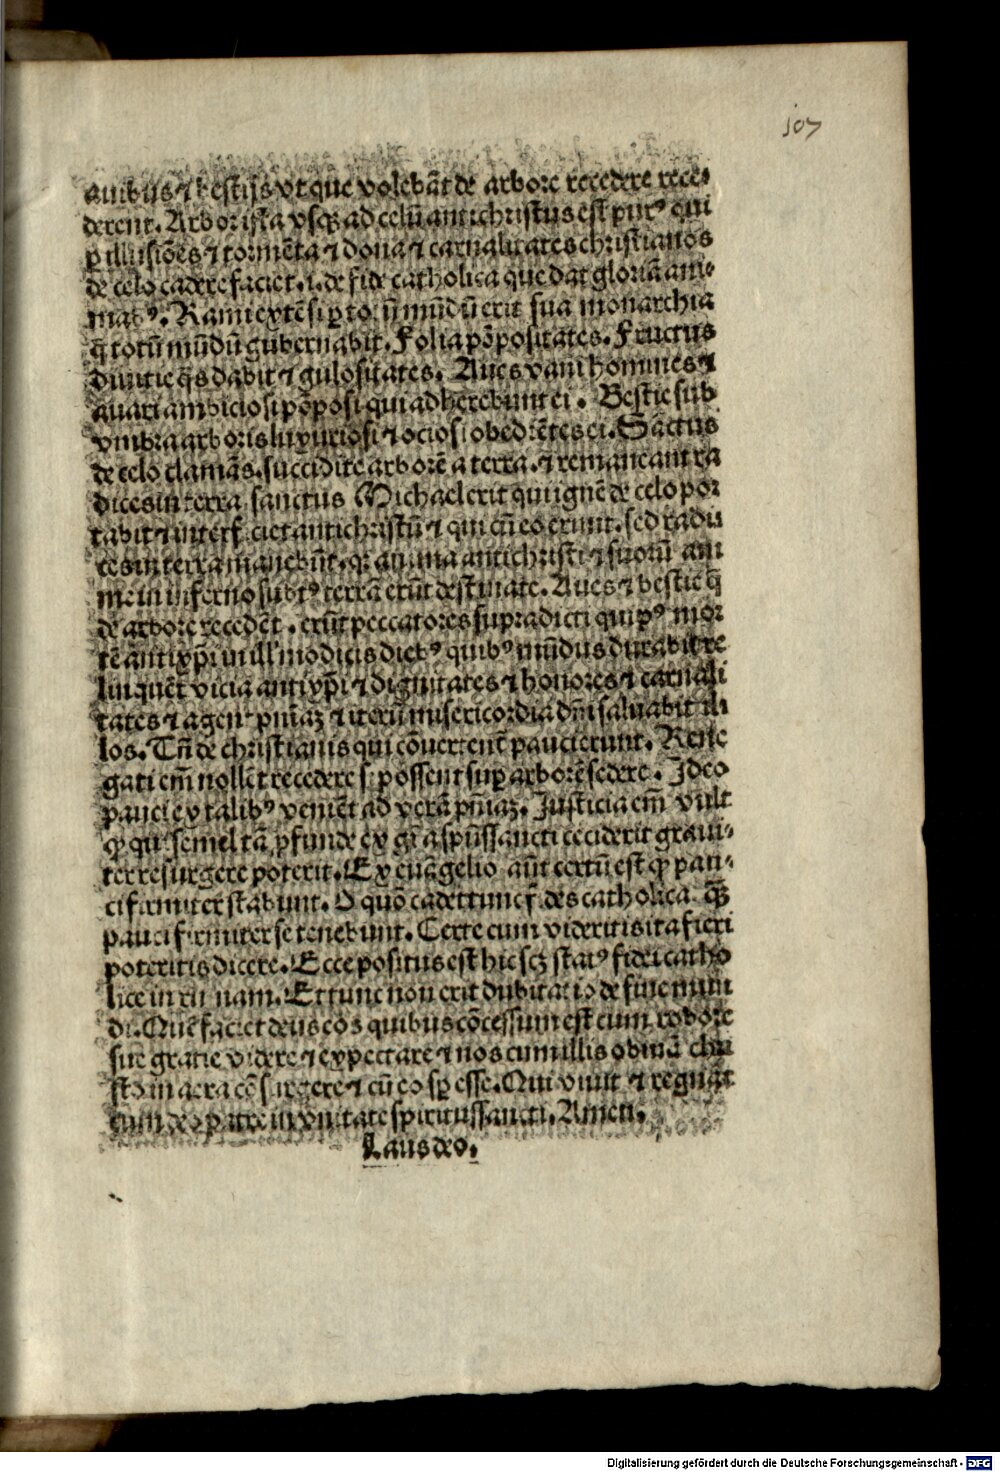 107
auibus ⁊ bestijs vt que volebāt de arbore recedere rece⸗
derent. Arbor ista vsqꝫ ad celū antichristus est futurꝰ qui
ꝑ illusiões ⁊ tormēta ⁊ dona ⁊ carnalitates christianos
de celo cadere faciet .i. de fide catholica que dat gloriā ani⸗
mabꝰ. Rami extēsi ꝑ totū mūdū erit sua monarchia
q̄ totū mūdū gubernabit. Folia pōpositates. Fructus
diuitie q̄s dabit ⁊ gulositates. Aues vani homines ⁊
auari ambiciosi pōposi qui adherebunt ei. Bestie sub
vmbra arboris luxuriosi ⁊ ociosi obediētes ei. Sāctus
de celo clamās. succidite arborē a terra. ⁊ remaneant ra
dices in terra sanctus Michael erit qui ignē de celo por
tabit ⁊ interficiet antichristū ⁊ qui cū eo erunt. sed radi
ces in terra manebūt. qꝛ anima antichristi ⁊ suorū ani
me in inferno subtꝰ terrā erūt destinate. Aues ⁊ bestie q̄
de arbore recedēt. erūt peccatores supradicti qui pꝰ mor
tē antixp̄i in ill' modicis diebꝰ quibꝰ mūdus durabit re
linquēt vicia antixp̄i ⁊ dignitates ⁊ honores ⁊ carnali
tates ⁊ agent pn̄iaꝫ ⁊ iterū misericordia dn̄i saluabit il
los. Tn̄ de christianis qui cōuertent pauci erunt. Rene
gati em̄ nollēt recedere si possent sup arborē sedere. Ideo
pauci ex talibꝰ veniēt ad verā pn̄iaꝫ. Iusticia em̄ vult
ꝙ qui semel tā ꝓfunde ex gr̄a spūssancti ceciderit graui⸗
ter resurgere poterit. Ex euāgelio aūt certū est ꝙ pau⸗
ci firmiter stabunt. O quō cadet tunc fides catholica. q̄ꝫ
pauci firmiter se tenebunt. Certe cum videritis ita fieri
poteritis dicere. Ecce positus est hic scꝫ statꝰ fidei catho
lice in ruinam. Et tunc non erit dubitatio de fine mun
di. Quē faciet deus eos quibus cōcessum est cum robore
sue gratie videre ⁊ expectare ⁊ nos cum illis obuiā chri
sto in aera cōsurgere ⁊ cū eo sp̄ esse. Qui viuit ⁊ regnat
cum deo patre in vnitate spiritussancti. Amen.
Laus deo.
Digitalisierung gefördert durch die Deutsche Forschungsgemeinschaft - DFG